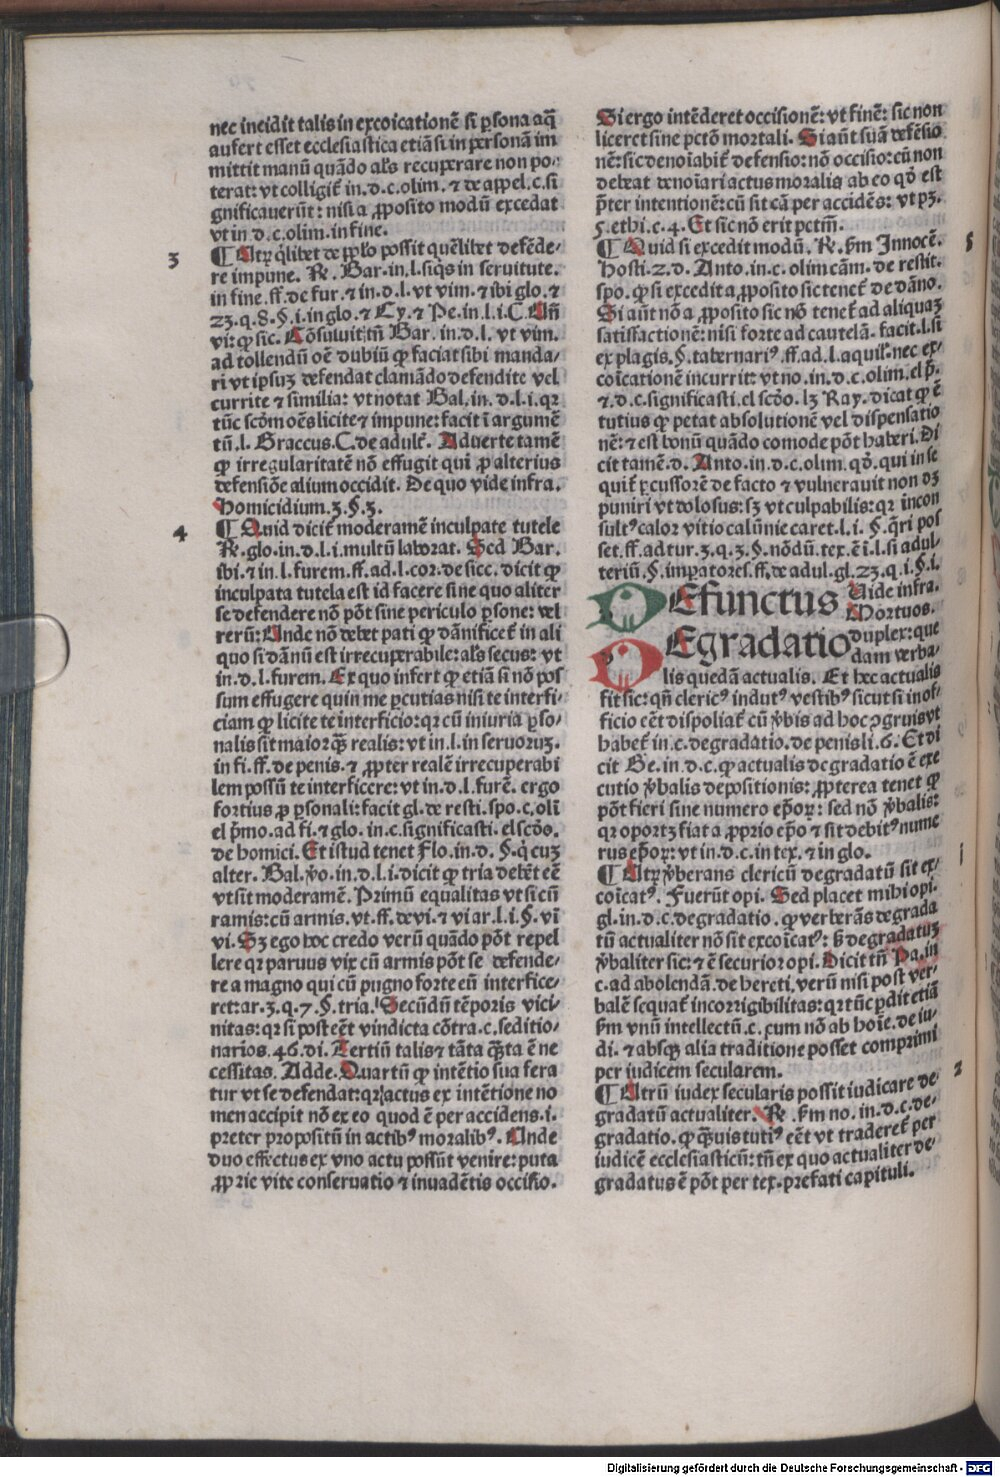 nec incidit talis in excoicationē si p̱sona aq̄
aufert esset ecclesiastica etiā si in personā im
mittit manū quādo al's recuperare non po-
terat: vt colligit᷑ in.d.c.olim.⁊ de appel.c.si
gnificauerūt: nisi a ꝓposito modū excedat
vt in d.c.olim.in fine.
3
¶ Utrꝝ q̄libet de pplo possit quēlibet defēde-
re impune. ℞. Bar.in.l.siq̄s in seruitute.
in fine.ff.de fur.⁊ in.d.l.vt vim.⁊ ibi glo.⁊
23.q.8.§.i.in glo.⁊ Cy.⁊ Pe.in l.i.C.Uñ
vi: ꝙ sic. Cōsuluit tñ Bar.in.d.l.vt vim.
ad tollendū oē dubiū ꝙ faciat sibi manda-
ri vt ipsuꝫ defendat clamādo defendite vel
currite ⁊ similia: vt notat Bal.in.d.l.i.qꝛ
tūc scd̄m oēs licite ⁊ impune: facit ī argumē
tū.l.Graccus.C.de adult᷑. Aduerte tamē
ꝙ irregularitatē nō effugit qui ꝓ alterius
defensiōe alium occidit. De quo vide infra.
Homicidium.3.§.3.
4
¶ Quid dicit᷑ moderamē inculpate tutele
℞.glo.in.d.l.i.multū laborat. Sed Bar.
ibi.⁊ in.l.furem.ff.ad.l.cor.de sicc.dicit ꝙ
inculpata tutela est id facere sine quo aliter
se defendere nō pōt sine periculo p̱sone: vel
rerū: Unde nō debet pati ꝙ dānificet᷑ in ali
quo si dānū est irrecuperabile: al's secus: vt
in.d.l.furem. Ex quo infert ꝙ etiā si nō pos
sum effugere quin me p̱cutias nisi te interfi-
ciam ꝙ licite te interficio: qꝛ cū iniuria p̱so-
nalis sit maior q̄ꝫ realis: vt in.l.in seruoruꝫ.
in fi.ff.de penis.⁊ ꝓpter realē irrecuperabi
lem possū te interficere: vt in.d.l.furē. ergo
fortius ꝓ p̱sonali: facit gl.de resti.spo.c.olī
el p̄mo.ad fi.⁊ glo.in.c.significasti.el scd̄o.
de homici. Et istud tenet Flo.in.d.§.q̄ cuꝫ
alter. Bal.ꝟo.in.d.l.i.dicit ꝙ tria debēt eē
vt sit moderamē. Primū equalitas vt si cū
ramis: cū armis.vt.ff.de vi.⁊ vi ar.l.i.§.vī
vi. Sꝫ ego hoc credo verū quādo pōt repel
lere qꝛ paruus vix cū armis pōt se defende-
re a magno qui cū pugno forte eū interfice-
ret: ar.3.q.7.§.tria. Secūdū tēporis vici-
nitas: qꝛ si post eēt vindicta cōtra.c.seditio-
narios.46.di. Tertiū talis ⁊ tāta q̄ꝫta ē ne
cessitas. Adde. Quartū ꝙ intētio sua fera
tur vt se defendat: qꝛ actus ex intētione no
men accipit nō ex eo quod ē per accidens.i.
preter propositū in actibꝰ moralibꝰ. Unde
duo effectus ex vno actu possūt venire: puta
ꝓprie vite conseruatio ⁊ inuadētis occisio.
Si ergo intēderet occisionē: vt finē: sic non
liceret sine pctō mortali. Si aūt suā defēsio
nē: sic denoīabit᷑ defensio: nō occisio: cū non
debeat denoīari actus moralis ab eo qd̓ est
p̄ter intentionē: cū sit cā per accidēs: vt pꝫ.
5.ethi.c.4. Et sic nō erit pctm̄.
5
¶ Quid si excedit modū. ℞.ẜm Innocē.
Hosti.2.d.Anto.in.c.olim cām.de restit.
spo.ꝙ si excedit a ꝓposito sic tenet᷑ de dāno.
Si aūt nō a ꝓposito sic nō tenet᷑ ad aliquaꝫ
satisfactionē: nisi forte ad cautelā.facit.l.si
ex plagis.§.tabernariꝰ.ff.ad.l.aquil.nec ex-
coīcationē incurrit: vt no.in.d.c.olim.el p̄.
⁊.d.c.significasti.el scd̄o.lꝫ Ray.dicat ꝙ ē
tutius ꝙ petat absolutionē vel dispensatio
nē: ⁊ est bonū quādo comode pōt haberi. Di
cit tamē.d.Anto.in.d.c.olim.qd̓.qui in se
quit᷑ p̱cussorē de facto ⁊ vulnerauit non dꝫ
puniri vt dolosus: sꝫ vt culpabilis: qꝛ incon
sultꝰ calor vitio calūnie caret.l.i.§.q̄ri pos
set.ff.ad tur.3.q.3.§.nōdū.tex.ē ī.l.si adul-
teriū.§.imp̱atores.ff.de adul.gl.23.q.i.§.i.
DEfunctus Uide infra.
Mortuos.
DEgradatio duplex: que
dam verba-
lis quedā actualis. Et hec actualis
fit sic: qn̄ clericꝰ indutꝰ vestibꝰ sicut si in of-
ficio eēt dispoliat᷑ cū ꝟbis ad hoc ꝯgruis vt
habet᷑ in.c.degradatio.de penis li.6. Et di
cit Ge.in.d.c.ꝙ actualis degradatio ē exe
cutio ꝟbalis depositionis: ꝓpterea tenet ꝙ
pōt fieri sine numero ep̄oꝝ: sed nō ꝟbalis:
qꝛ oportꝫ fiat a ꝓprio ep̄o ⁊ sit debitꝰ nume
rus ep̄oꝝ: vt in.d.c.in tex.⁊ in glo.
i
¶ Utrꝝ ꝟberans clericū degradatū sit ex-
coīcatꝰ. Fuerūt opi. Sed placet mihi opi.
gl.in.d.c.degradatio.ꝙ verberās degrada
tū actualiter nō sit excoīcatꝰ: ẜ degradatuꝫ
ꝟbaliter sic: ⁊ ē securior opi. Dicit tñ Pa.in
c.ad abolendā.de hereti.verū nisi post ver-
balē sequat᷑ incorrigibilitas: qꝛ tūc p̱dit etiā
ẜm vnū intellectū.c.cum nō ab hoīe.de iu-
di.⁊ absqꝫ alia traditione posset comprimi
per iudicem secularem.
2
¶ Utrū iudex secularis possit iudicare de-
gradatū actualiter. ℞.ẜm no.in.d.c.de-
gradatio.ꝙ q̄ꝫuis tutiꝰ eēt vt traderet᷑ per
iudicē ecclesiasticū: tñ ex quo actualiter de-
gradatus ē pōt per tex.prefati capituli.
Digitalisierung gefördert durch die Deutsche Forschungsgemeinschaft - DFG